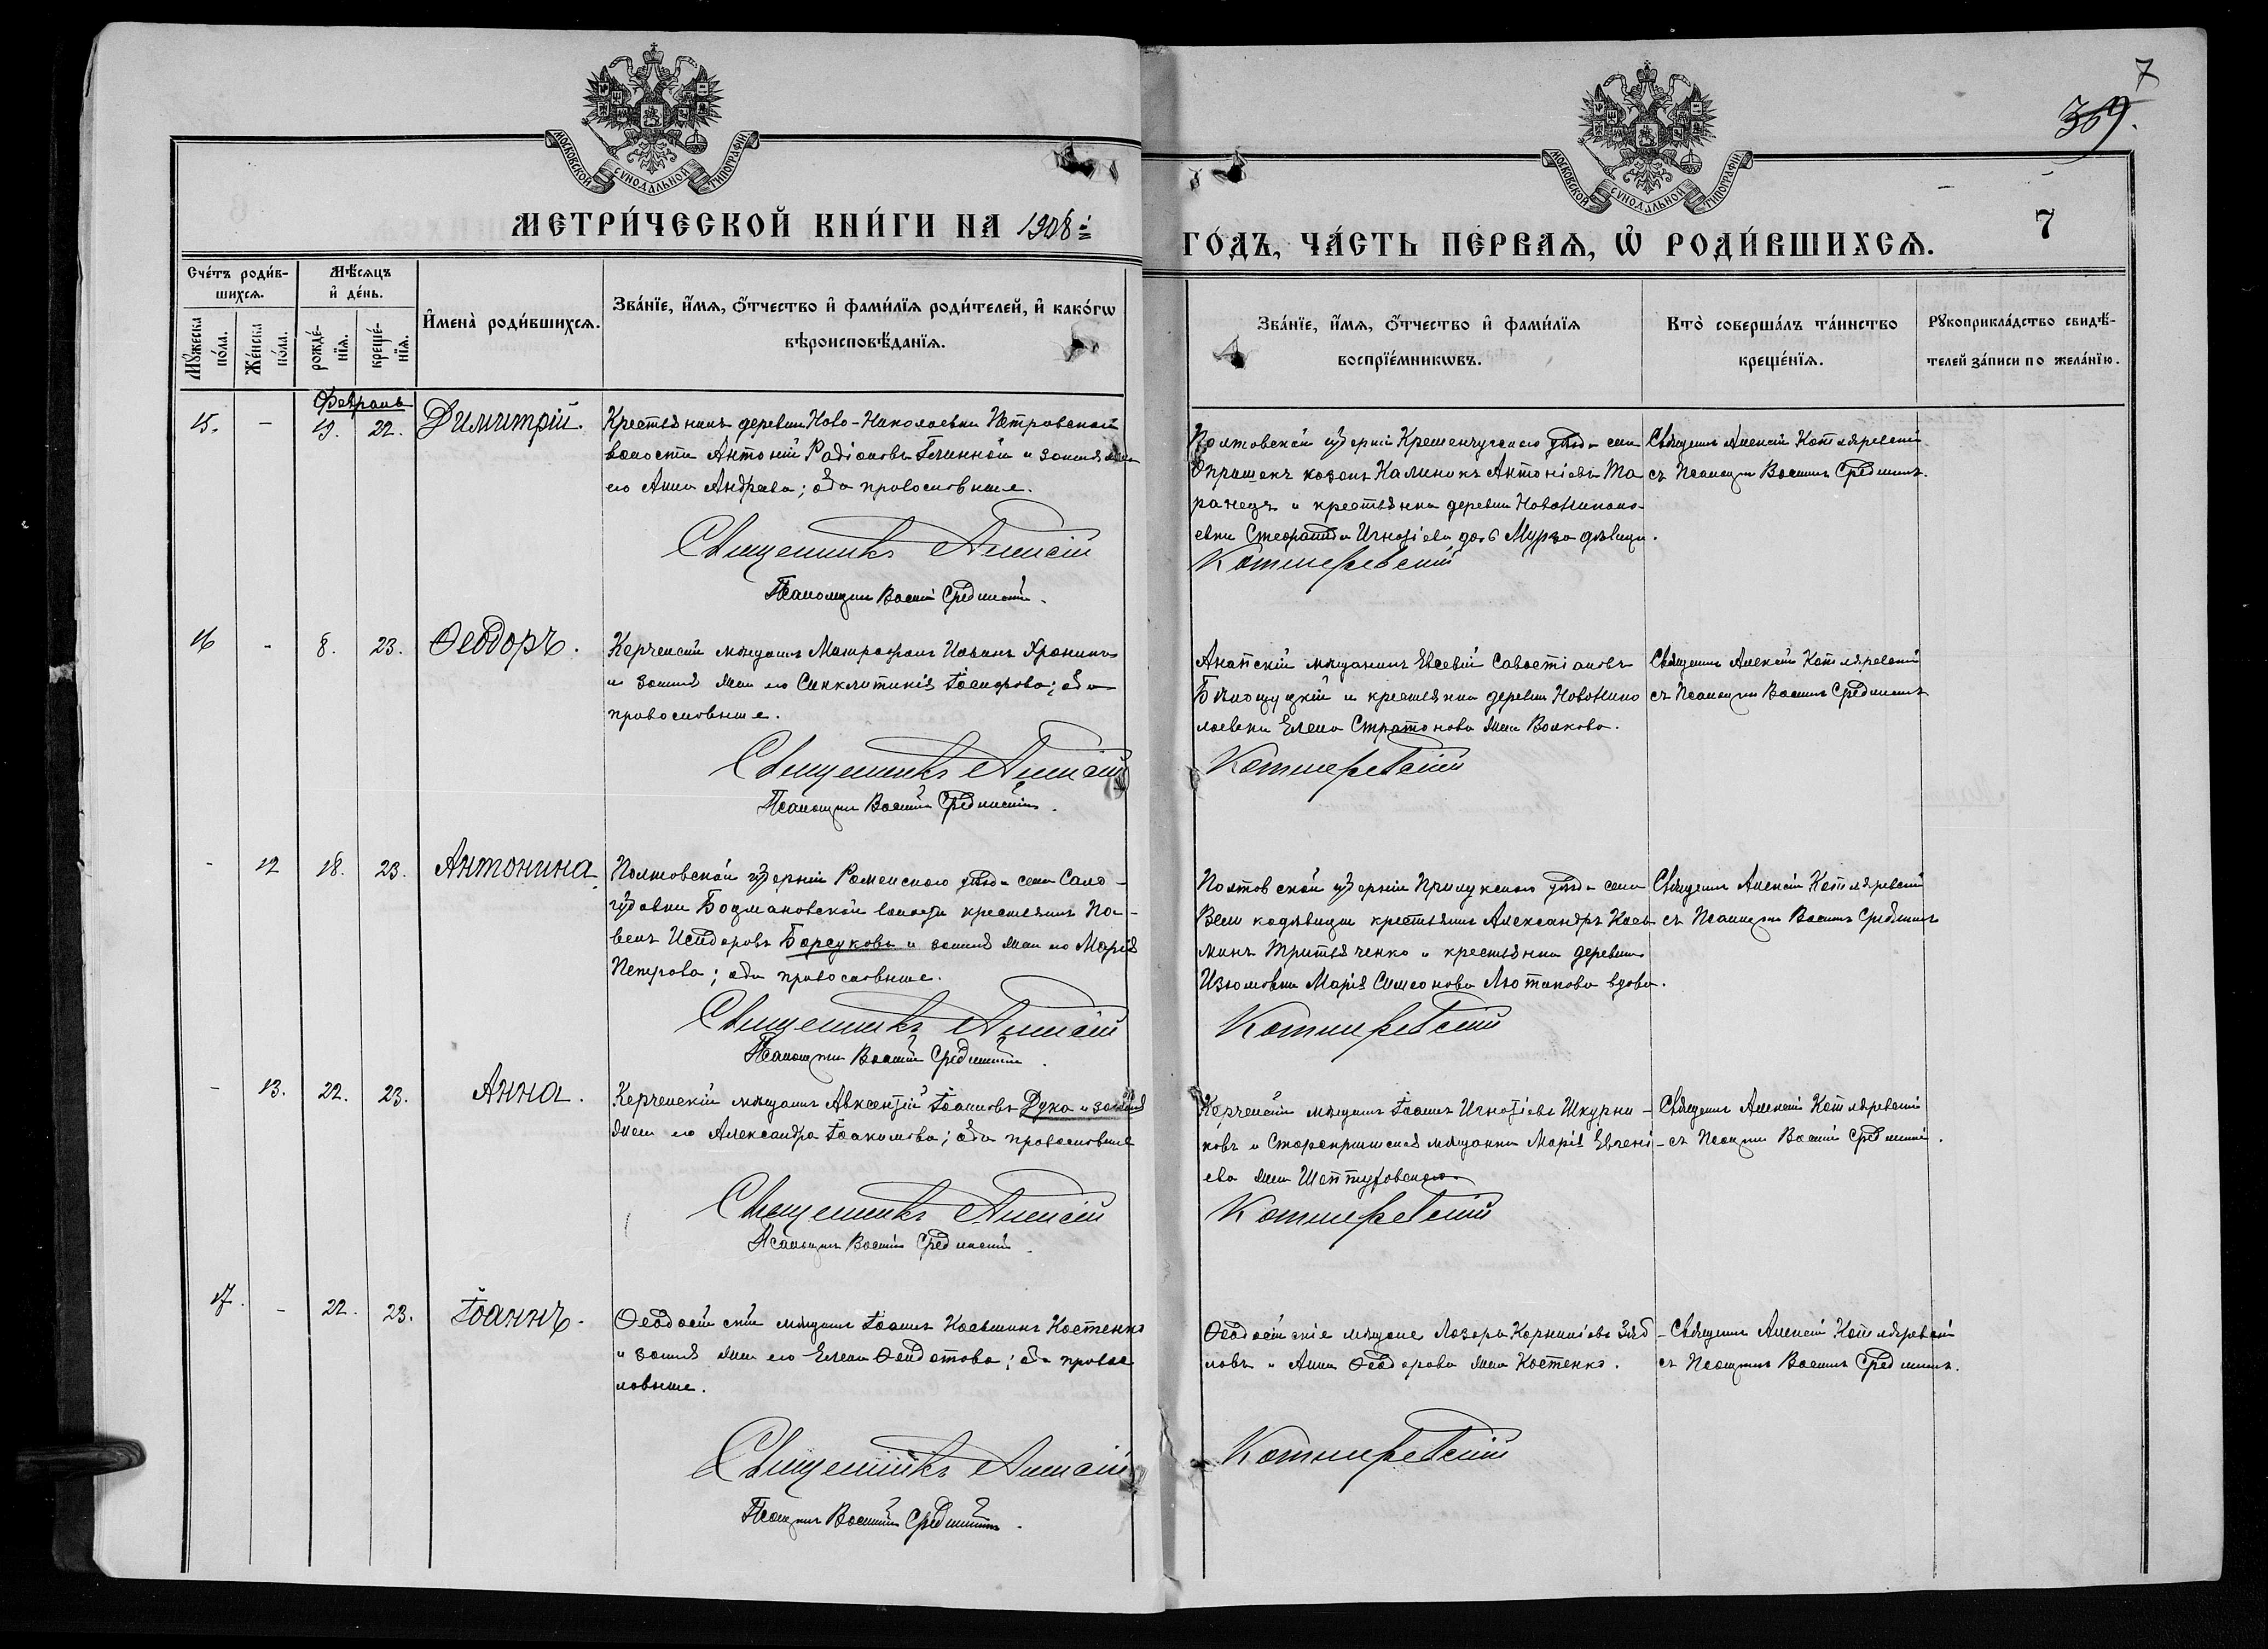 7
369.
МОСКОВСКОЙ СѴНОДАЛЬНОЙ ТИПОГРАФІИ
МОСКОВСКОЙ СѴНОДАЛЬНОЙ ТИПОГРАФІИ
МЕТРИ́ЧЕСКОЙ КНИ́ГИ НА 1908й
ГО́ДЪ, ЧА́СТЬ ПЕ́РВАѦ, Ѡ҆ РОДИ́ВШИХСѦ.
7
Сче́тъ роди́в-
шихсѧ.
Мꙋ́жеска
по́ла.
Же́нска
по́ла.
Мѣ́сѧцъ
и҆ де́нь.
рожде́-
нїѧ.
креще́-
нїѧ.
И҆мена̀ роди́вшихсѧ.
Зва́нїе, и҆́мѧ, ѻ҆́тчество и҆ фами́лїѧ роди́телей, и҆ како́гѡ
вѣроисповѣ́данїѧ.
Зва́нїе, и҆́мѧ, ѻ҆́тчество и҆ фами́лїѧ
воспрїе́мникѡвъ.
Кто̀ соверша́лъ та́инство
креще́нїѧ.
Рꙋкоприкла́дство свидѣ́-
телей за́писи по жела́нїю.
Февраль
15. - 19. 22. Димитрій.
Крестьянинъ деревни Ново-Николаевки Петровской
волости Антоній Радіоновъ Глинной и законная жена
его Анна Андреева; оба православные.
Священникъ Алексій
Псаломщикъ Василій Срединскій.
Полтовской губерніи Кременчугскаго уѣзда села
Опришекъ козакъ Калиникъ Антоніевъ Та
ранецъ и крестьянка деревни Новониколо-
евки Стефанида Игнатіева дочь Мурза дѣвица.
Котляревскій
Священ. Алексій Котляревскій
съ Псаломщ. Василіемъ Срединскимъ.
16 - 8. 23. Ѳеодоръ.
Керченскій мѣщанинъ Митрофанъ Иовинъ Хронинъ
и законная жена его Синклитикія Іосифова; оба
православные.
Священникъ Алексій
Псаломщикъ Василій Срединскій.
Анапскій мѣщанинъ Евсевій Савостіановъ
Бѣлоцуцкій и крестьянка деревни Новонико
лаевки Елена Стратонова жена Волкова.
Котляревскій
Священ. Алексій Котляревскій
съ Псаломщ. Василіемъ Срединскимъ
- 12 18. 23. Антонина.
Полтовской губерніи Роменскаго уѣзда села Сало-
губовки Боцмановской волости крестьянинъ Па-
велъ Исидоровъ Барсуковъ и законная жена его Марія
Петрова; оба православные.
Священникъ Алексій
Псаломщикъ Василій Срединскій.
Полтовской губерніи Прилукскаго уѣзда села
Вели кодѣвицы крестьянинъ Александръ Косъ
минъ Третьяченко и крестьянка деревни
Изюмовки Марія Симеонова Лютикова вдова.
Котляревскій
Священ. Алексій Котляревскій
съ Псаломщ. Василіемъ Срединскимъ
- 13. 22. 23. Анна.
Керченскій мѣщанинъ Авксентій Іоанновъ Дука и законная
жена его Александра Іоакимова; оба православные
Священникъ Алексій
Псаломщикъ Василій Срединскій.
Керченскій мѣщанинъ Іоаннъ Игнатіевъ Шкурни-
ковъ и Старокрымская мѣщанка Марія Евгені-
ева жена
Котляревскій
Священ. Алексій Котляревскій
съ Псаломщ. Василіемъ Срединскимъ.
17. - 22. 23. Іоаннъ.
Ѳеодосійскій мѣщанинъ Іоаннъ Косьминъ Костенко
и законная жена его Елена Ѳеодотова; оба правос
лавные.
Священникъ Алексій
Псаломщикъ Василій Срединскій.
Ѳеодосійскіе мѣщане Лазарь Корниліевъ Зяб
ловъ и Анна Ѳеодорова жена Костенко.
Котляревскій
Священ. Алексій Котляревскій
съ Псаломщ. Василіемъ Срединскимъ.